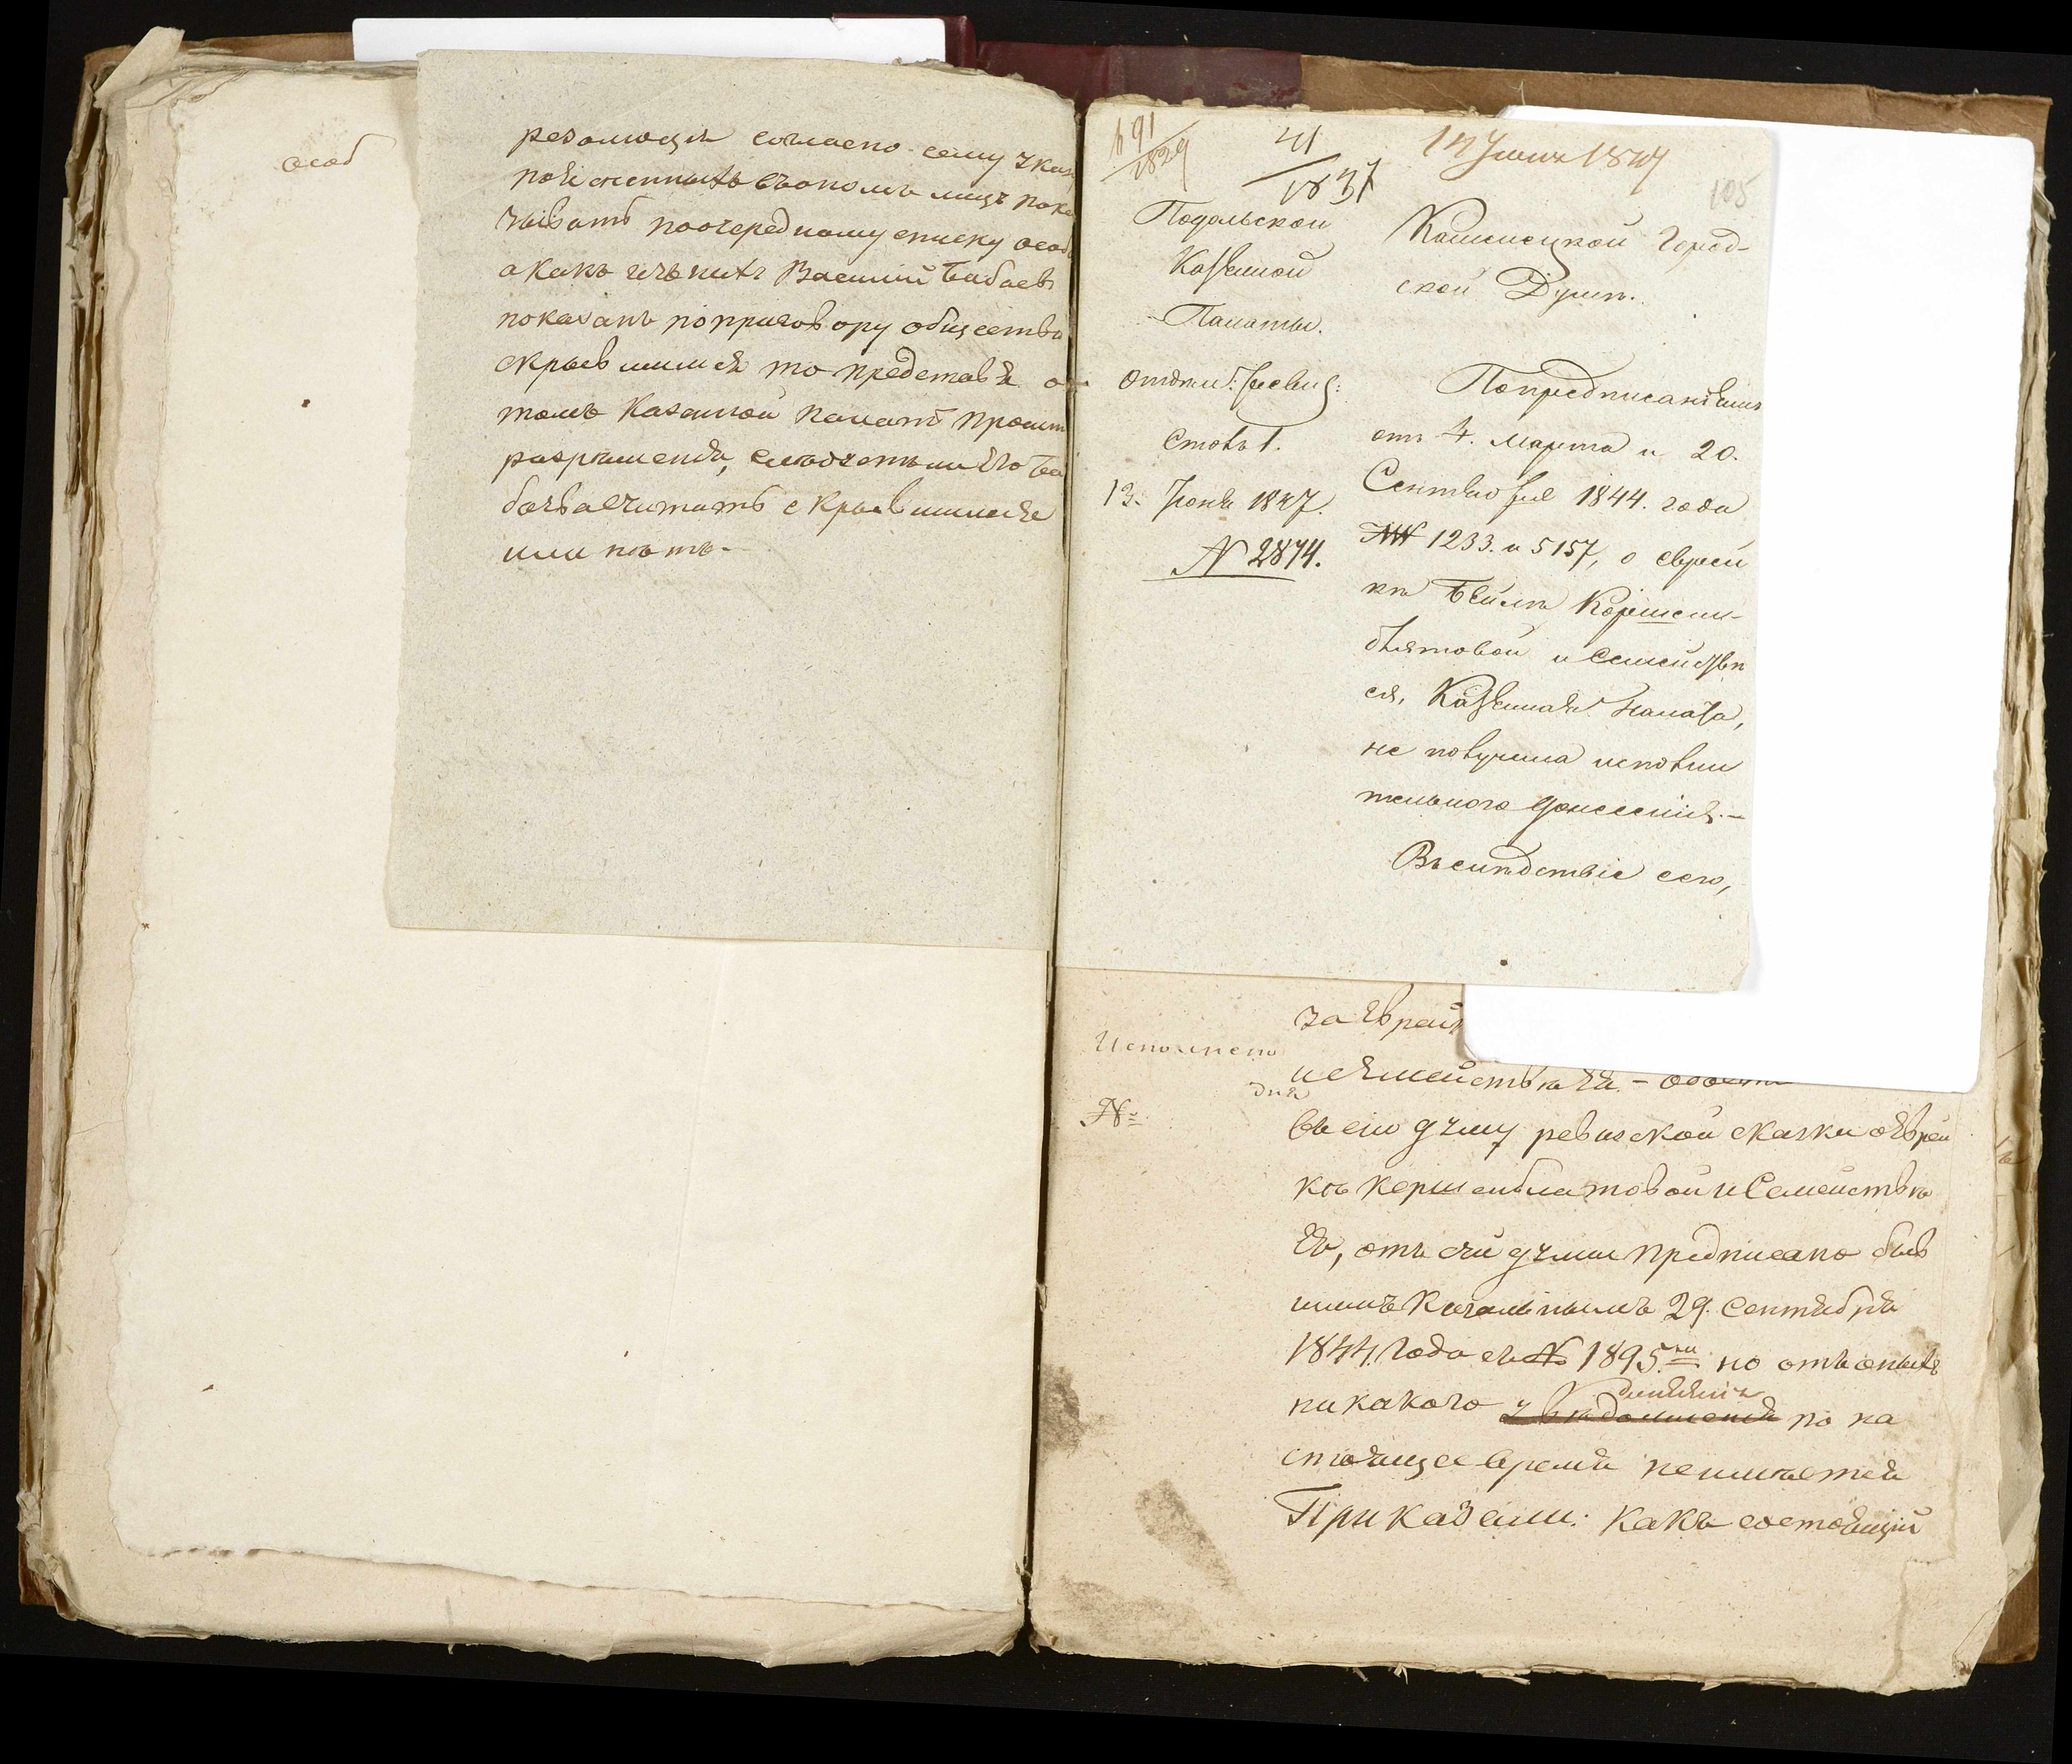 особ
резолюция согласно сему указу
поясненныхъ въономъ лицъ пока
зывать поочередному списку особ
а какъ изъ нихъ Василий Бабаевъ
показанъ поприговору общества
скрывшимся то представя о
томъ Казенной палатѣ просить
разрѣшенія, слѣдуетъ ли его Ба
баева считать скрывшимся
или нѣтъ.
691/1829
41/1837
14 Іюня 1847
105
Подольской
Казенной
Палаты.
Отдѣл: Ревиз:
Столъ 1.
13. Іюня 1847.
N 2874.
Каменецкой Город-
ской Думѣ.
Попредписаніямъ
отъ 4. Марта и 20.
Сентября 1844. года
NN 1233. и 5157, о еврей
кѣ Бейлѣ Коршен-
блятовой и Семействѣ
ея, Казенная Палата,
не получила исполни
тельнаго донесенія.-
Въслѣдствіе сего,
Исполнено
дня
№
за Еврей
и семействѣ Ея. –
въ сію думу ревизской сказки о Еврей
кѣ Коршенблатовой и Семействѣ
Ея, отъ сей думы предписано быв
шимъ Кагальнымъ 29. Сентября
1844. года съ № 1895. но отъ оныхъ
никакого увѣдомленія по на
стоящее время неимѣется
Приказали: Какъ состоящій